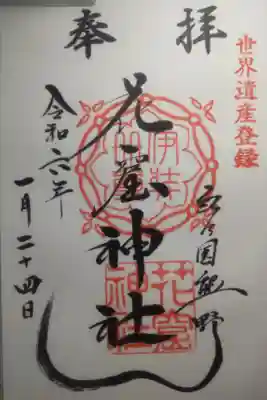 世界遺産登録
奉拝
国熊野
花窟神社
花窟
神社
令和六年
一月二十四日